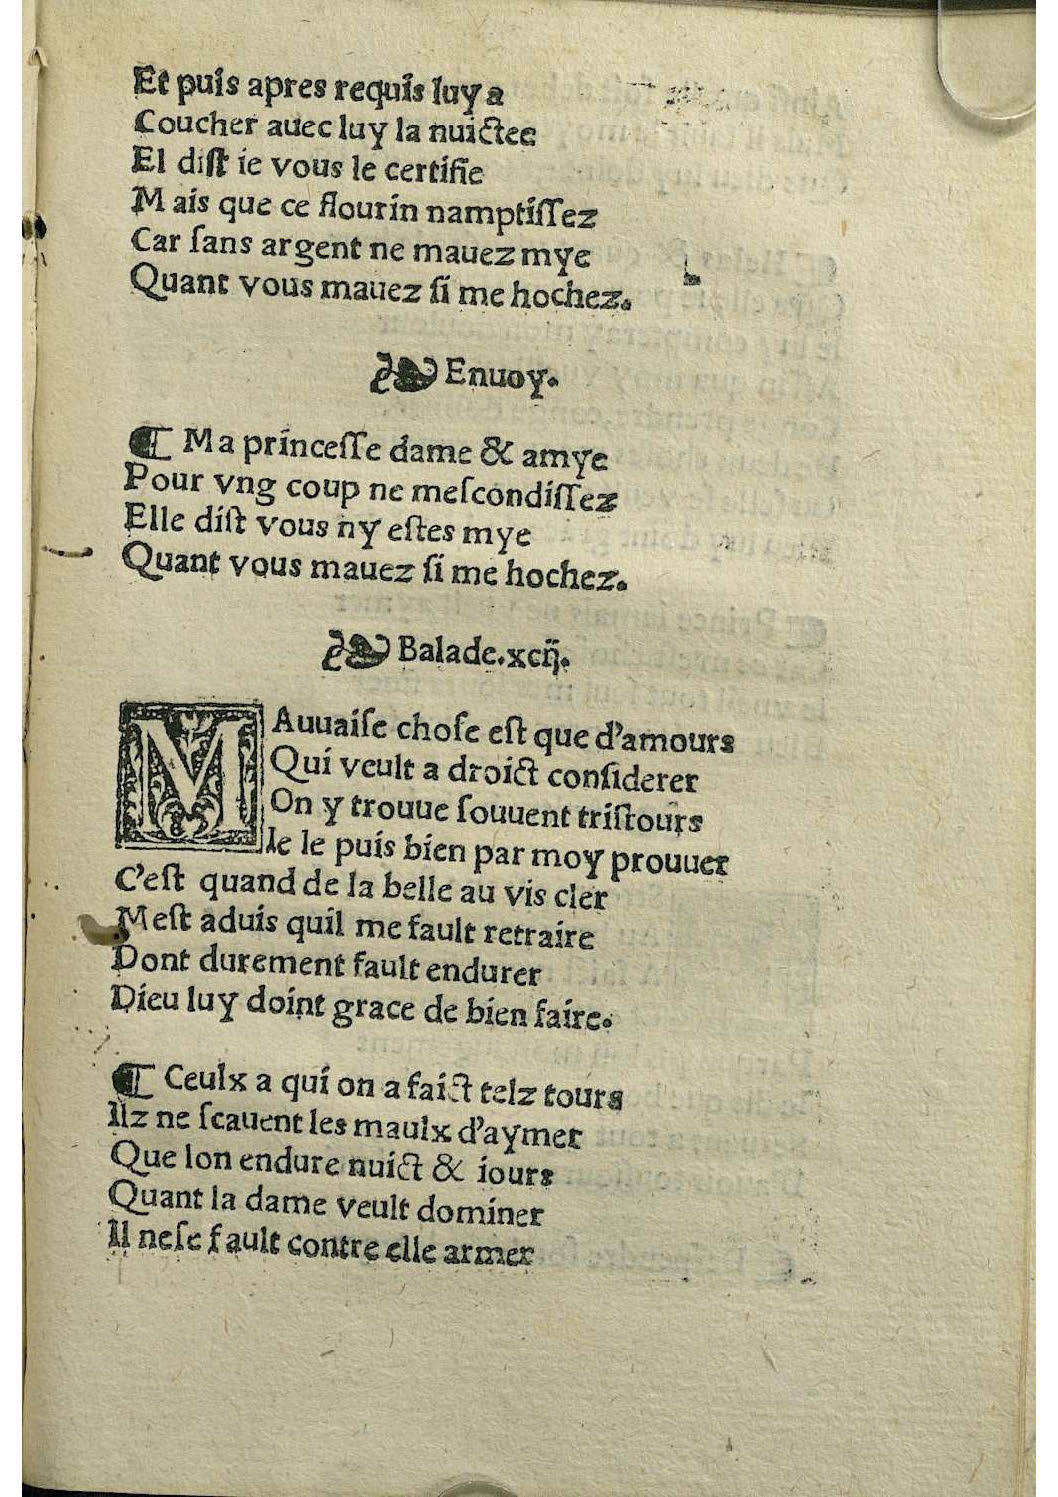 Et puis apres requis luy a
Coucher auec luy la nuictee
El dist ie vous le certifie
Mais que ce flourin namptissez
Car sans argent ne mauez mye
Quant vous mauez si me hochez.
Enuoy.
¶ Ma princesse dame & amye
Pour vng coup ne mescondissez
Elle dist vous ny estes mye
Quant vous mauez si me hochez.
Balade.xcij.
MAuuaise chose est que d'amours
Qui veult a droict considerer
On y trouue souuent tristours
Ie le puis bien par moy prouuer
C'est quand de la belle au vis cler
Mest aduis quil me fault retraire
Dont durement fault endurer
Dieu luy doint grace de bien faire.
¶ Ceulx a qui on a faict telz tours
Ilz ne scauent les maulx d'aymer
Que lon endure nuict & iours
Quant la dame veult dominer
Il ne se fault contre elle armer